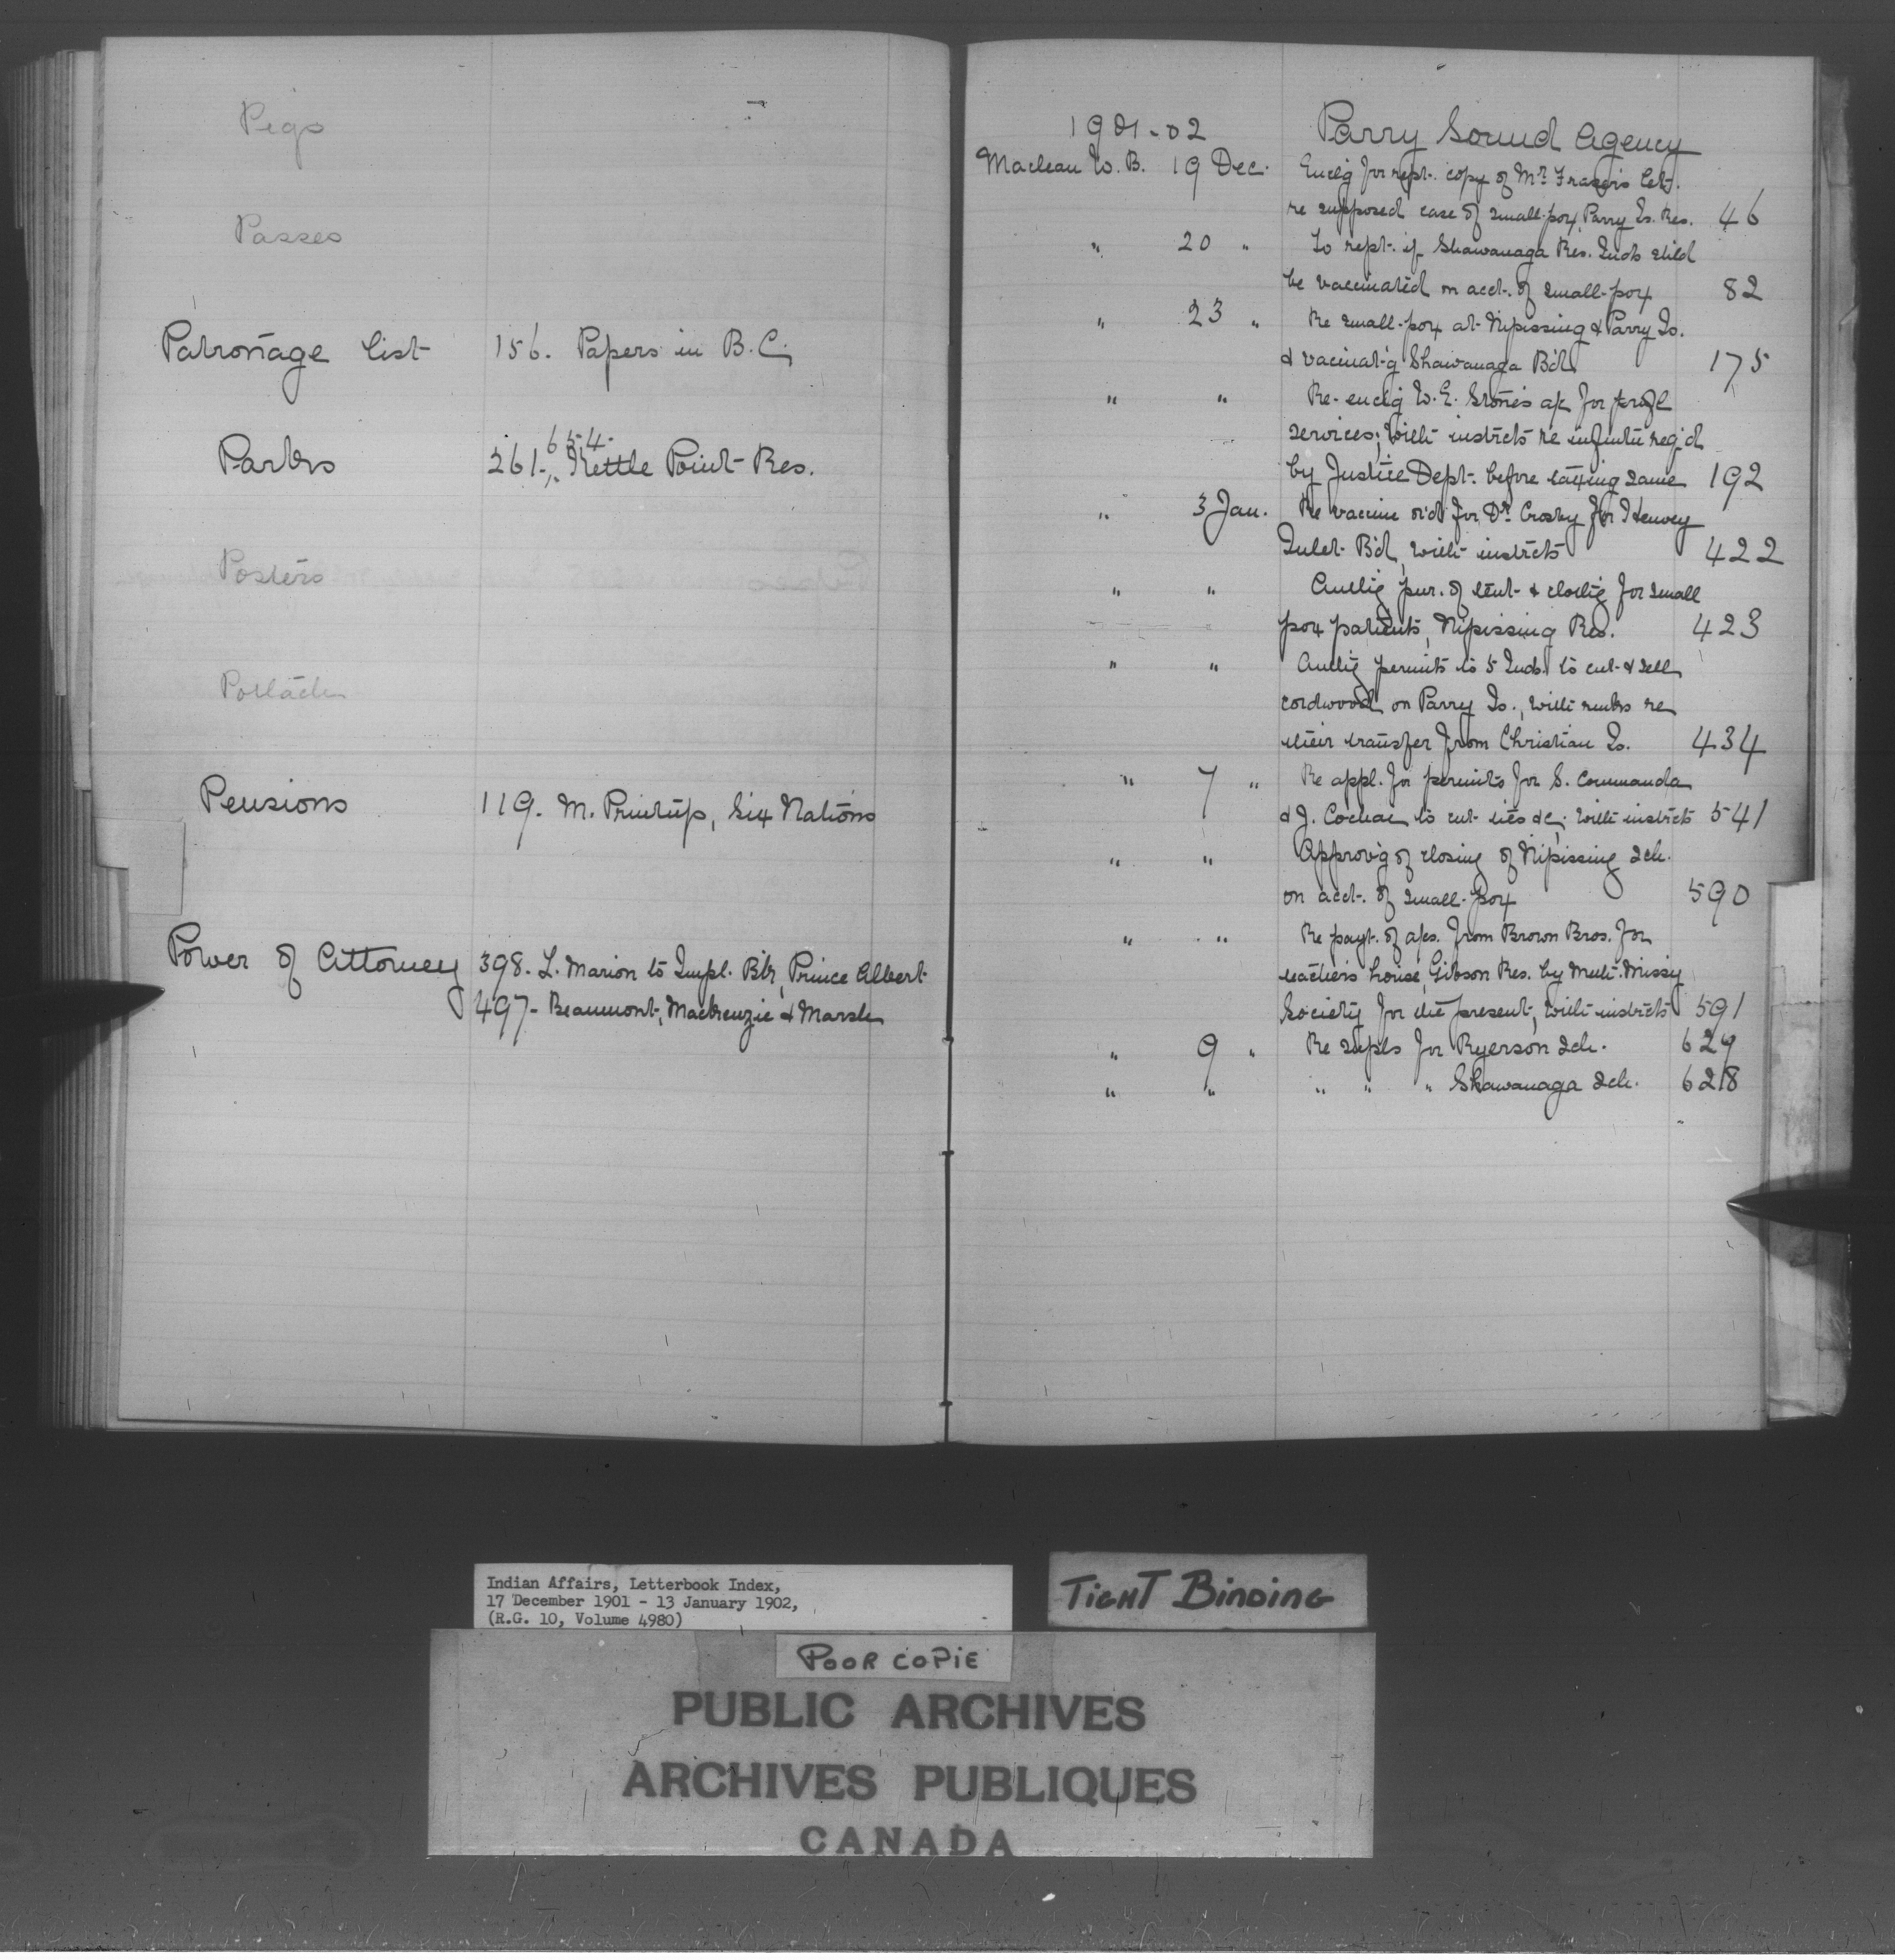 Pigs
Passes
Patronage List 156. Papers in B.C.
654.
Parks 261. " Kettle Point Res.
Posters
Potlach
Pensions 119. M. Printup, Six Nations
Power of Attorney 398. L. Marion to Impl. Bk, Prince Albert
497- Beaumont, Mackenzie & Marsh
1901-02 Parry Sound Agency
Maclean W. B. 19 Dec. Enclg for rept. copy of Mr. Frazer's let.
re supposed case of small-pox, Parry Is. Res. 46
" 20 " To rept. if Shawanaga Res. Inds shld
be vaccinated on acct. of small-pox 82
" 23 " Re small-pox at Nipissing & Parry Is.
& vaccinat'g Shawanaga Bd. 175
" " Re-enclg W. E. Stone's a/c for profl
services; with instrcts re infmtn req'd
by Justice Dept. before taxing same 192
" 3 Jan. Re vaccine or'd for Dr. Crosby for Henvey
Inlet Bd, with instrcts 422
" " Authg pur. of tent & clothg for small
pox patients, Nipissing Res. 423
" " Authg permits to 5 Inds. to cut & sell
cordwood on Parry Is., with remks re
their transfer from Christian Is. 434
" 7 " Re appl. for permits for S. Commanda
& J. Cochai to cut ties &c; with instrcts 541
" " Approv'g of closing of Nipissing Sch.
on acct. of small-pox 590
" " Re payt. of a/cs. from Brown Bros. for
teacher's house, Gibson Res. by Meth. Missy
Society for the present, with instrcts 591
" 9 " Re supls for Ryerson Sch. 627
" " " " " Shawanaga Sch. 628
Indian Affairs, Letterbook Index,
17 December 1901 - 13 January 1902,
(R.G. 10, Volume 4980)
TIGHT BINDING
POOR COPIE
PUBLIC ARCHIVES
ARCHIVES PUBLIQUES
CANADA